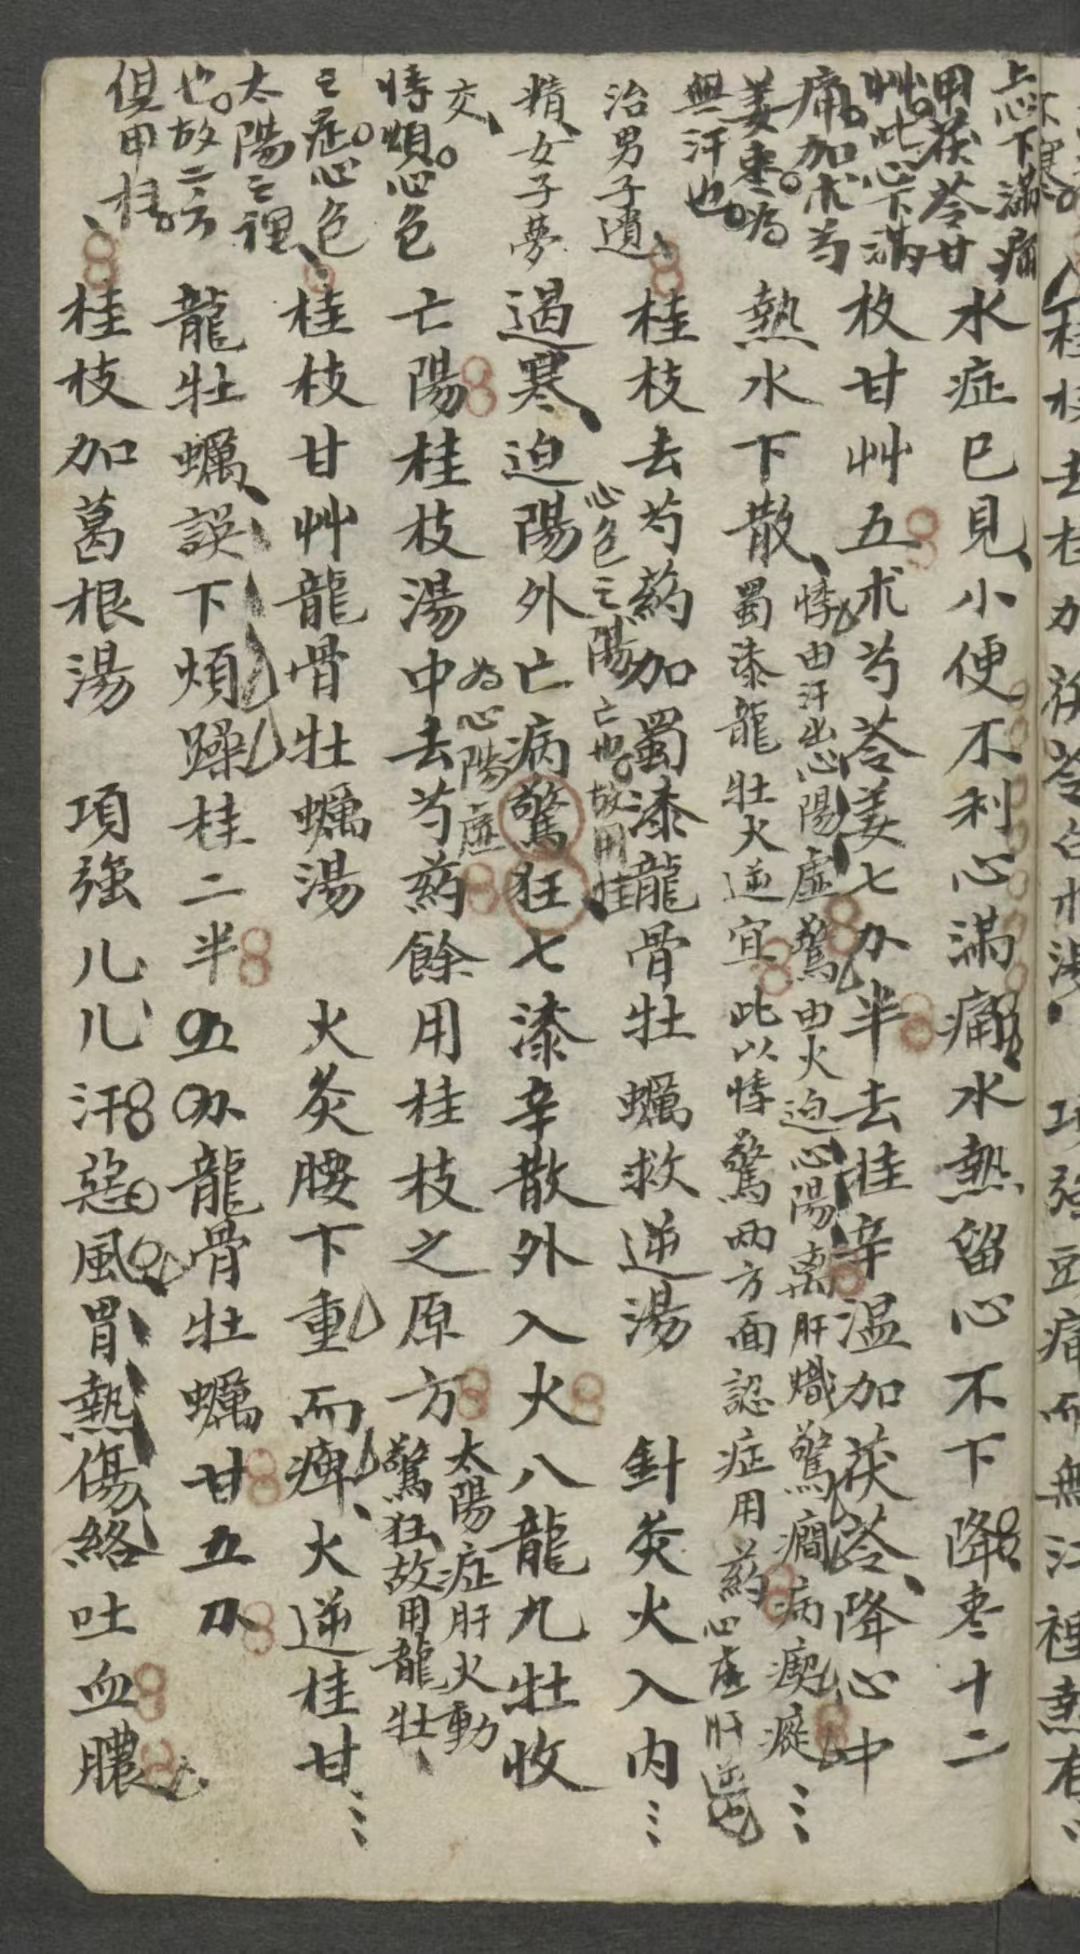 上心下滿痛
甲茯苓甘
艸此心下滿
痛加朮芍
姜枣為
無汗也
治男子遺
精女子夢
交
悸煩心包
之症心包
太陽之裡
也故二方
俱用桂
水症已見小便不利心滿痛水熱留心不下降枣十二
枚甘艸五朮芍苓姜七分半去桂辛温加茯苓降心中
熱水下散
悸由汗出心陽虛驚由火迫心陽离肝熾驚癇病瘛瘲
蜀漆龍牡火逆宜此以悸驚两方面認症用药心虛肝逆也
桂枝去芍药加蜀漆龍骨牡蠣救逆湯 針灸火入内
心包之陽亡也故用桂
過寒迫陽外亡病驚狂七漆辛散外入火八龍九牡收
為心陽虛
亡陽桂枝湯中去芍药餘用桂枝之原方
太陽症肝火動
驚狂故用龍牡
桂枝甘艸龍骨牡蠣湯 火灸腰下重而痺火逆桂甘
龍牡蠣誤下煩躁桂二半五分龍骨牡蠣甘五分
桂枝加葛根湯 項強几几汗惡風胃熱傷絡吐血膿